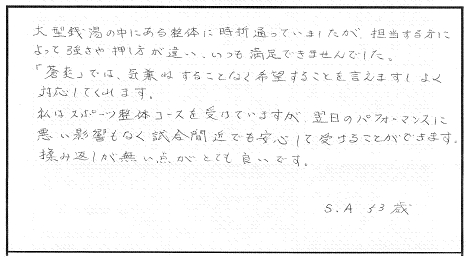 大型銭湯の中にある整体に時折通っていましたが、担当する方に
よって強さや押し方が違い、いつも満足できませんでした。
「蒼乾」では、気兼ねすることなく希望することを言えますしよく
対応してくれます。
私はスポーツ整体コースを受けていますが、翌日のパフォーマンスに
悪い影響もなく試合間近でも安心して受けることができます。
揉み返しが無い点がとても良いです。
S.A 43歳